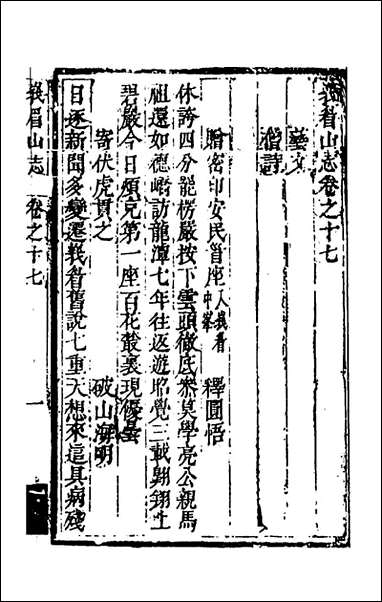 峩眉山志卷之十七
藝文
僧詩
贈密印安民首座 入峩眉中峯 釋圓悟
休誇四分罷楞嚴按下雲頭徹底參莫學亮公親馬
祖還如德嶠訪龍潭七年往返遊昭覺三載翺翔上
碧巖今日煩充第一座百花叢裏現優曇
寄伏虎貫之 破山海明
日逐新聞多變遷峩眉舊說七重天想來這具病殘
峩眉山志 卷之十七 一